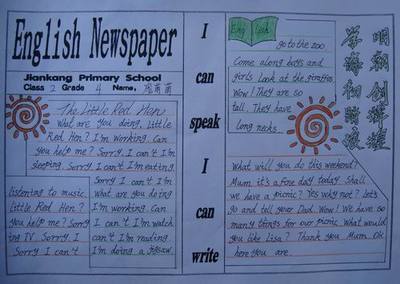 English Newspaper
Jiankang Primary School
Class 2 Grade 4 Name:
The Little Red Hen
What are you doing, Little
Red Hen? I'm working. Can
you help me? Sorry. I can't I'm
sleeping. Sorry I can't I'm eating.
Sorry I can't I'm
Listening to music
Little Red Hen?
you help me? Sorry
ing TV. Sorry I
Sorry I can't
What are you doing
I'm working. Can
I can't I'm watch
can't I'm reading
I'm doing a jigsaw
I
can
speak
I
can
write
English
go to the zoo
Come along boys and
girls Look at the giraffes
Wow! They are so
tall. They have
long necks.
学海彻
明朝创辉煌
What will you do this weekend?
Mum it's a fine day today. Shall
we have a picnic? Yes why not? Let's
go and tell your Dad. Wow! We have so
many things for our picnic. What would
you like Lisa? Thank you Mum. Ok
here you are.